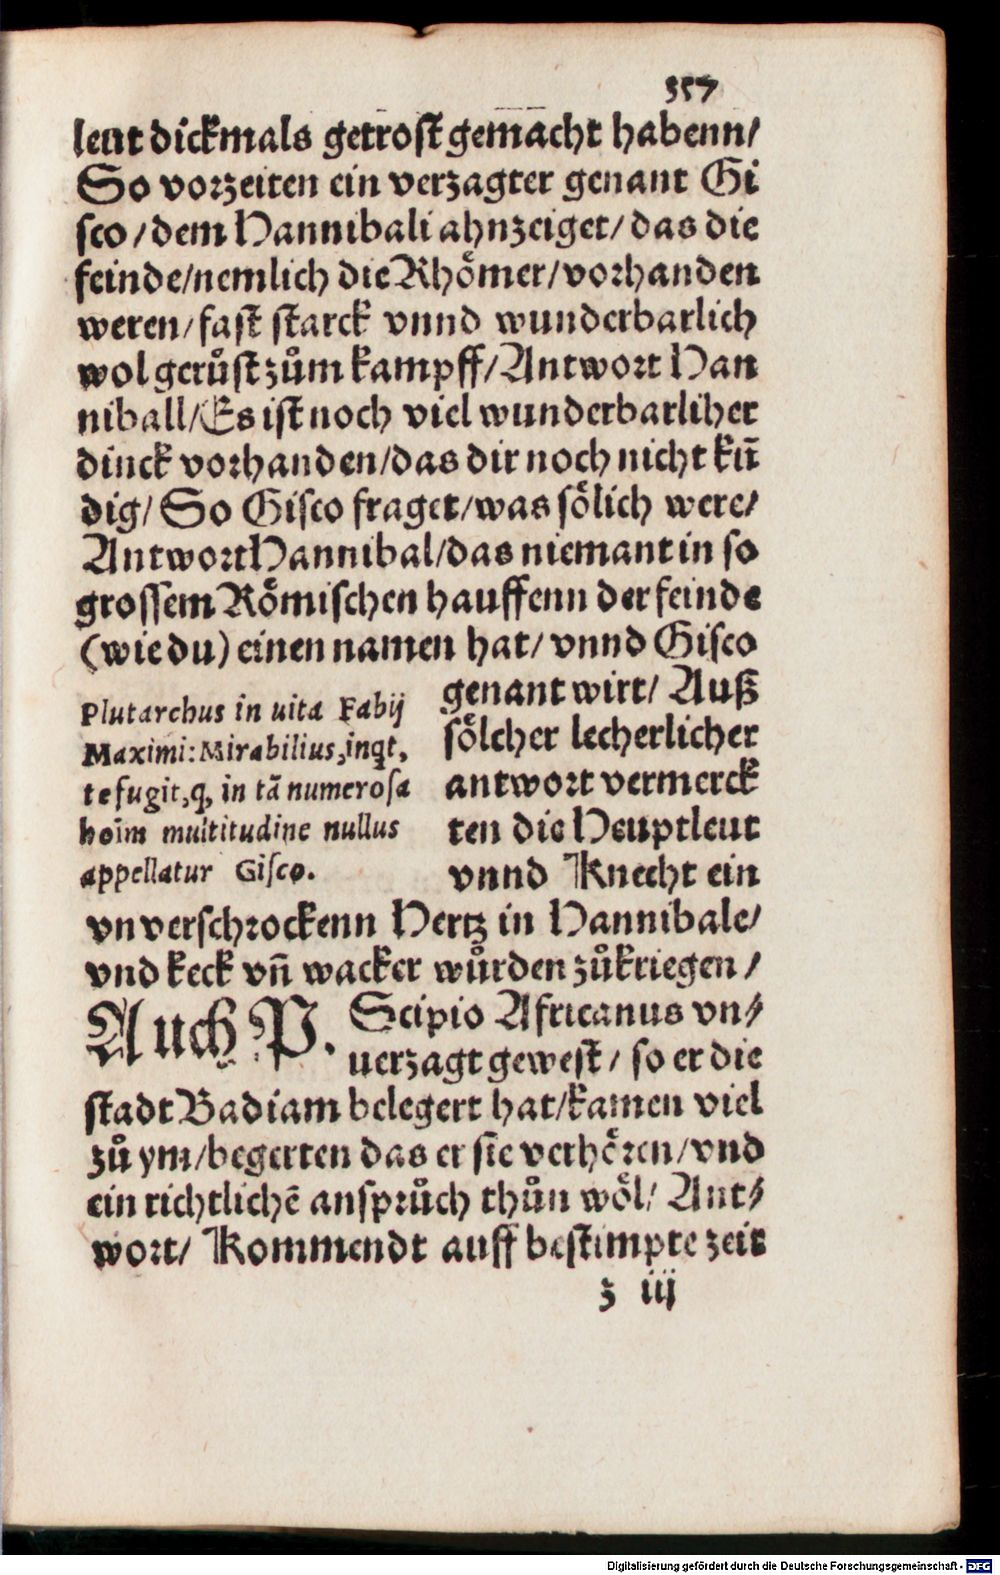 357
leut dickmals getrost gemacht habenn/
So vorzeiten ein verzagter genant Gi
sco/dem Hannibali ahnzeiget/das die
feinde/nemlich die Rhoͤmer/vorhanden
weren/fast starck vnnd wunderbarlich
wol geruͤst zuͦm kampff/Antwort Han
niball/Es ist noch viel wunderbarliher
dinck vorhanden/das dir noch nicht kuñ
dig/So Gisco fraget/was soͤlich were/
Antwort Hannibal/das niemant in so
grossem Roͤmischen hauffenn der feinde
(wie du) einen namen hat/vnnd Gisco
genant wirt/Auß
soͤlcher lecherlicher
antwort vermerck
ten die Heuptleut
vnnd Knecht ein
Plutarchus in uita Fabij
Maximi: Mirabilius, inqt,
te fugit, q, in tã numerosa
hoĩm multitudine nullus
appellatur Gisco.
vnverschrockenn Hertz in Hannibale/
vnd keck vñ wacker wuͤrden zuͦkriegen/
Auch P. Scipio Africanus vn⸗
uerzagt gewest/so er die
stadt Badiam belegert hat/kamen viel
zuͦ ym/begerten das er sie verhoͤren/vnd
ein richtlichẽ anspruͦch thuͦn woͤl/Ant⸗
wort/Kommendt auff bestimpte zeit
z iij
Digitalisierung gefördert durch die Deutsche Forschungsgemeinschaft - DFG